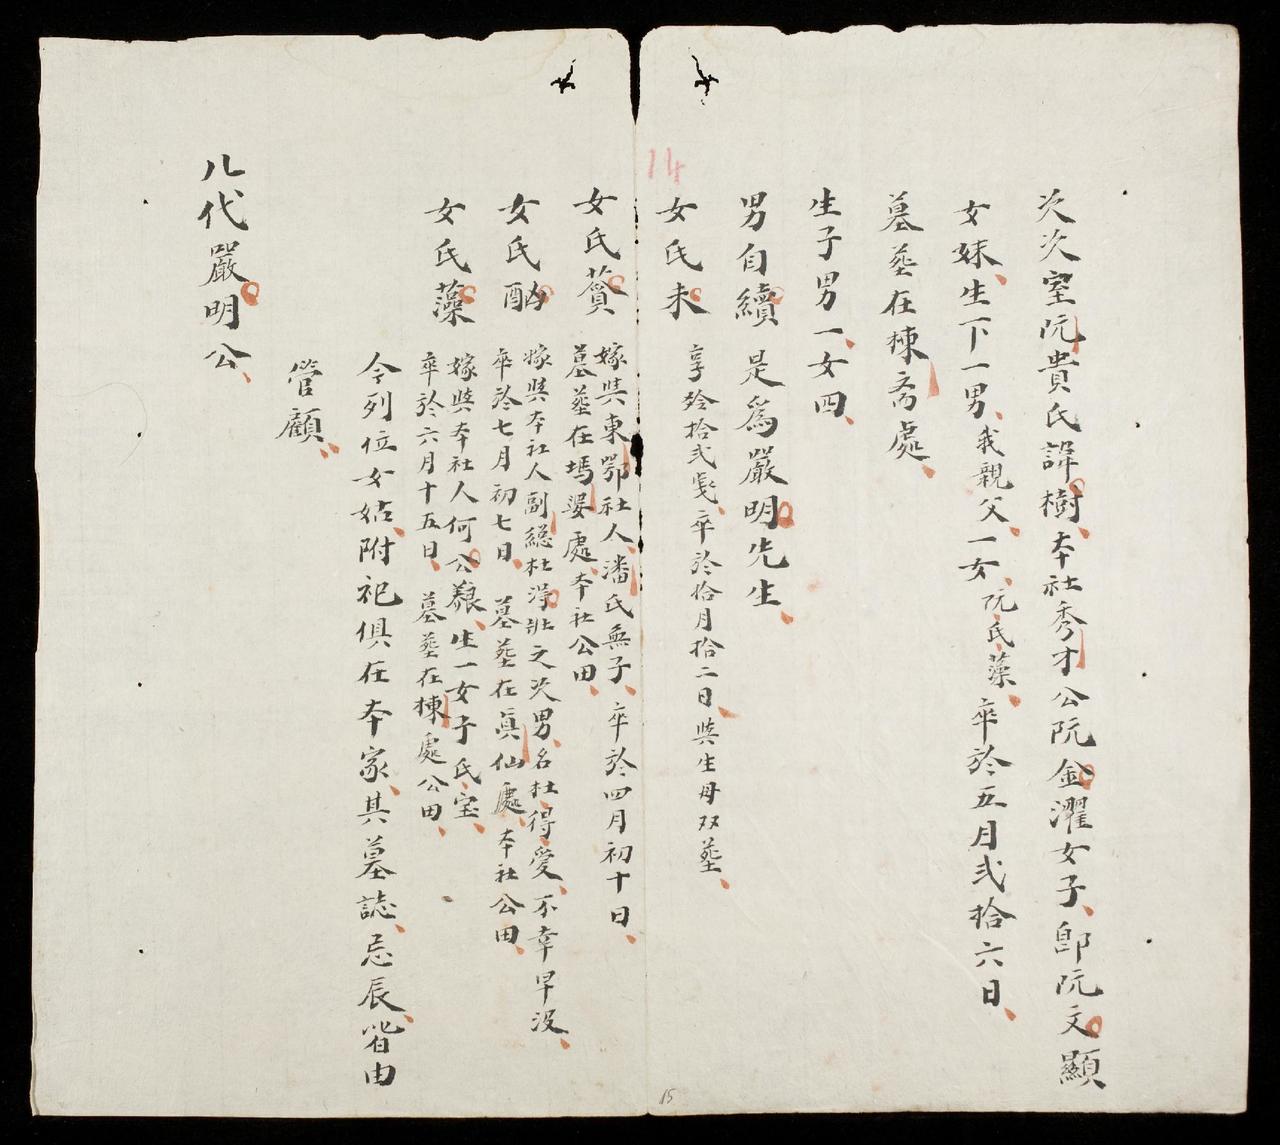 次次室阮貴氏諱樹本社秀才公阮金濯女子即阮文顯
女妹生下一男我親父一女阮氏藻卒於五月弍拾六日
墓葬在棟斋處
生子男一女四
男自續 是為嚴明先生
女氏未 享於拾弍歲卒於拾月拾二日與生母双葬
女氏薲 嫁與東鄂社人潘氏無子卒於四月初十日
墓葬在塢婆處本社公田
女氏酗 嫁與本社人副總杜淂壯之次男名杜得愛不幸早没
卒於七月初七日墓葬在眞仙處本社公田
女氏藻 嫁與本社人何公䊲生一女子氏宝
卒於六月十五日墓葬在棟處公田
令列位女姑附祀俱在本家其墓誌忌辰皆由
管顧
八代嚴明公
14
15